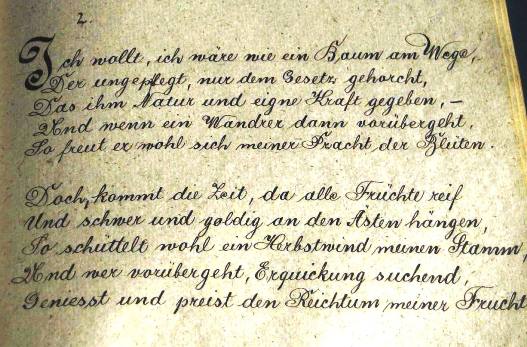 2.
Ich wollt, ich wäre wie ein Baum am Wege,
Der ungepflegt, nur dem Gesetz gehorcht,
Das ihm Natur und eigne Kraft gegeben, –
Und wenn ein Wandrer dann vorübergeht,
So freut er wohl sich meiner Pracht der Blüten.
Doch, kommt die Zeit, da alle Früchte reif
Und schwer und goldig an den Ästen hängen,
So schüttelt wohl ein Herbstwind meinen Stamm,
Und wer vorübergeht, Erquickung suchend,
Geniesst und preist den Reichtum meiner Frucht